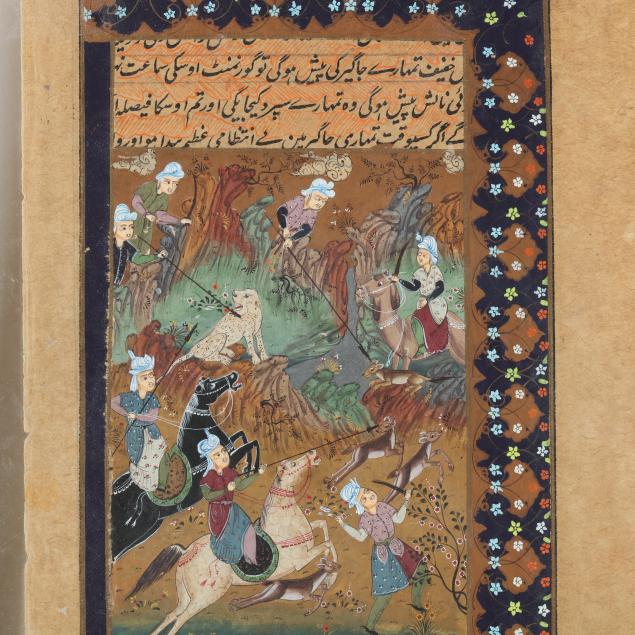 خفیف تمہارے جاگیر کی پیش ہوگی تو گورنمنٹ اوسکی سماعت
نالش پیش ہوگی وہ تمہارے سپرد کیجائیگی اور تم اوسکا فیصلہ
اگر کسیوقت تمہاری جاگیر مین بے انتظامی عظیم پیدا ہو اور